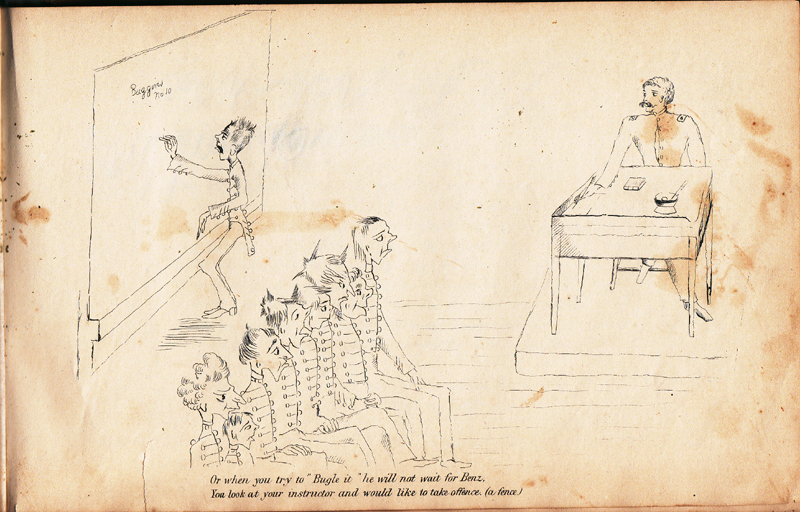 Buggins
No 10
Or when you try to "Bugle it" he will not wait for Benz,
You look at your instructor and would like to take offence. (a fence)